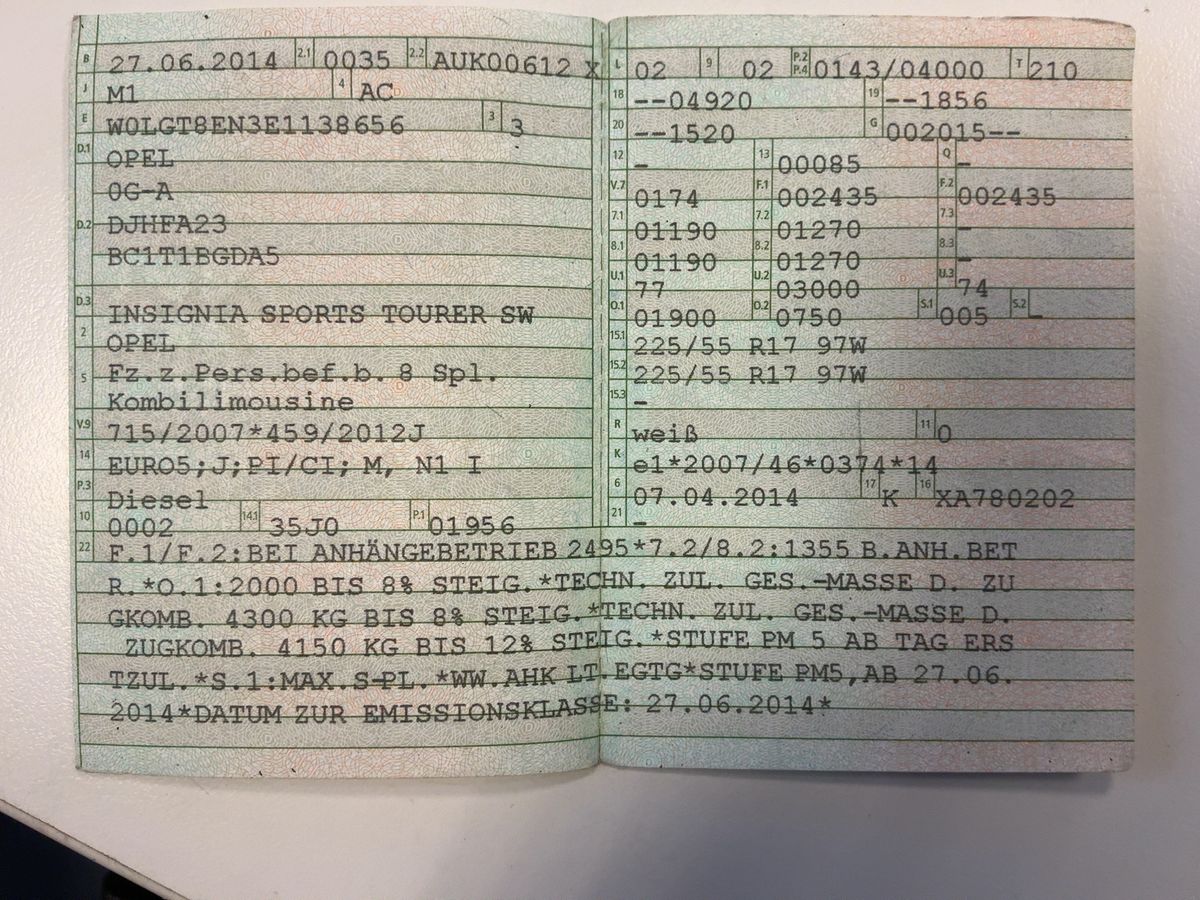 B 27.06.2014 2.1 0035 2.2 AUK00612 X
J M1 4 AC
E W0LGT8EN3E1138656 3 3
D.1 OPEL
0G-A
D.2 DJHFA23
BC1T1BGDA5
D.3 INSIGNIA SPORTS TOURER SW
2 OPEL
5 Fz.z.Pers.bef.b. 8 Spl.
Kombilimousine
V.9 715/2007*459/2012J
14 EURO5;J;PI/CI; M, N1 I
P.3 Diesel
10 0002 14.1 35J0 P.1 01956
L 02 9 02 P.2 P.4 0143/04000 T 210
18 --04920 19 --1856
20 --1520 G 002015--
12 - 13 00085 Q -
V.7 0174 F.1 002435 F.2 002435
7.1 01190 7.2 01270 7.3 -
8.1 01190 8.2 01270 8.3 -
U.1 77 U.2 03000 U.3 74
O.1 01900 O.2 0750 S.1 005 S.2 -
15.1 225/55 R17 97W
15.2 225/55 R17 97W
15.3 -
R weiß 11 0
K e1*2007/46*0374*14
6 07.04.2014 17 K 16 XA780202
21 -
22 F.1/F.2:BEI ANHÄNGEBETRIEB 2495*7.2/8.2:1355 B.ANH.BET
R.*O.1:2000 BIS 8% STEIG.*TECHN. ZUL. GES.-MASSE D. ZU
GKOMB. 4300 KG BIS 8% STEIG.*TECHN. ZUL. GES.-MASSE D.
ZUGKOMB. 4150 KG BIS 12% STEIG.*STUFE PM 5 AB TAG ERS
TZUL.*S.1:MAX.S-PL.*WW.AHK LT.EGTG*STUFE PM5,AB 27.06.
2014*DATUM ZUR EMISSIONSKLASSE: 27.06.2014*